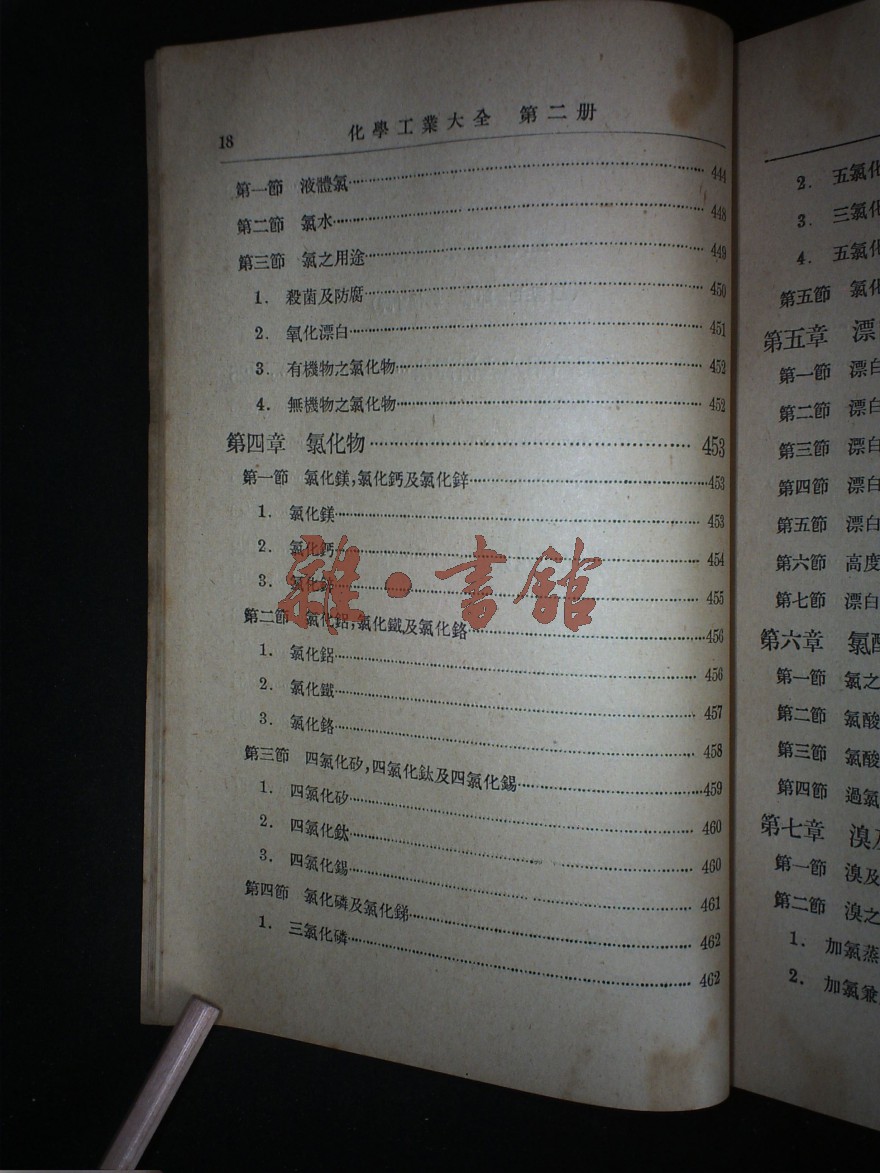 18 化學工業大全 第二册
第一節 液體氯 444
第二節 氯水 448
第三節 氯之用途 449
1. 殺菌及防腐 450
2. 氧化漂白 451
3. 有機物之氯化物 452
4. 無機物之氯化物 452
第四章 氯化物 453
第一節 氯化鎂,氯化鈣及氯化鋅 453
1. 氯化鎂 453
2. 氯化鈣 454
3. 氯化鋅 455
第二節 氯化鋁,氯化鐵及氯化鉻 456
1. 氯化鋁 456
2. 氯化鐵 457
3. 氯化鉻 458
第三節 四氯化矽,四氯化鈦及四氯化錫 459
1. 四氯化矽 460
2. 四氯化鈦 460
3. 四氯化錫 461
第四節 氯化磷及氯化銻 462
1. 三氯化磷 462
雜·書館
2. 五氯化
3. 三氯化
4. 五氯化
第五節 氯化
第五章 漂
第一節 漂白
第二節 漂白
第三節 漂白
第四節 漂白
第五節 漂白
第六節 高度
第七節 漂白
第六章 氯酸
第一節 氯之
第二節 氯酸
第三節 氯酸
第四節 過氯
第七章 溴及
第一節 溴及
第二節 溴之
1. 加氯蒸
2. 加氯兼